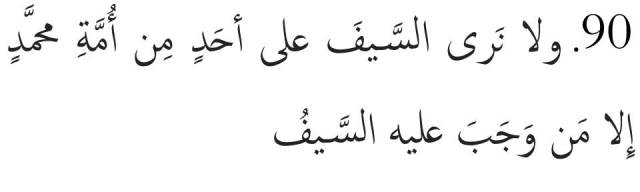 90. ولا نَرى السَّيفَ على أحَدٍ مِن أُمَّةِ محمَّدٍ
إلا مَن وَجَبَ عليه السَّيفُ